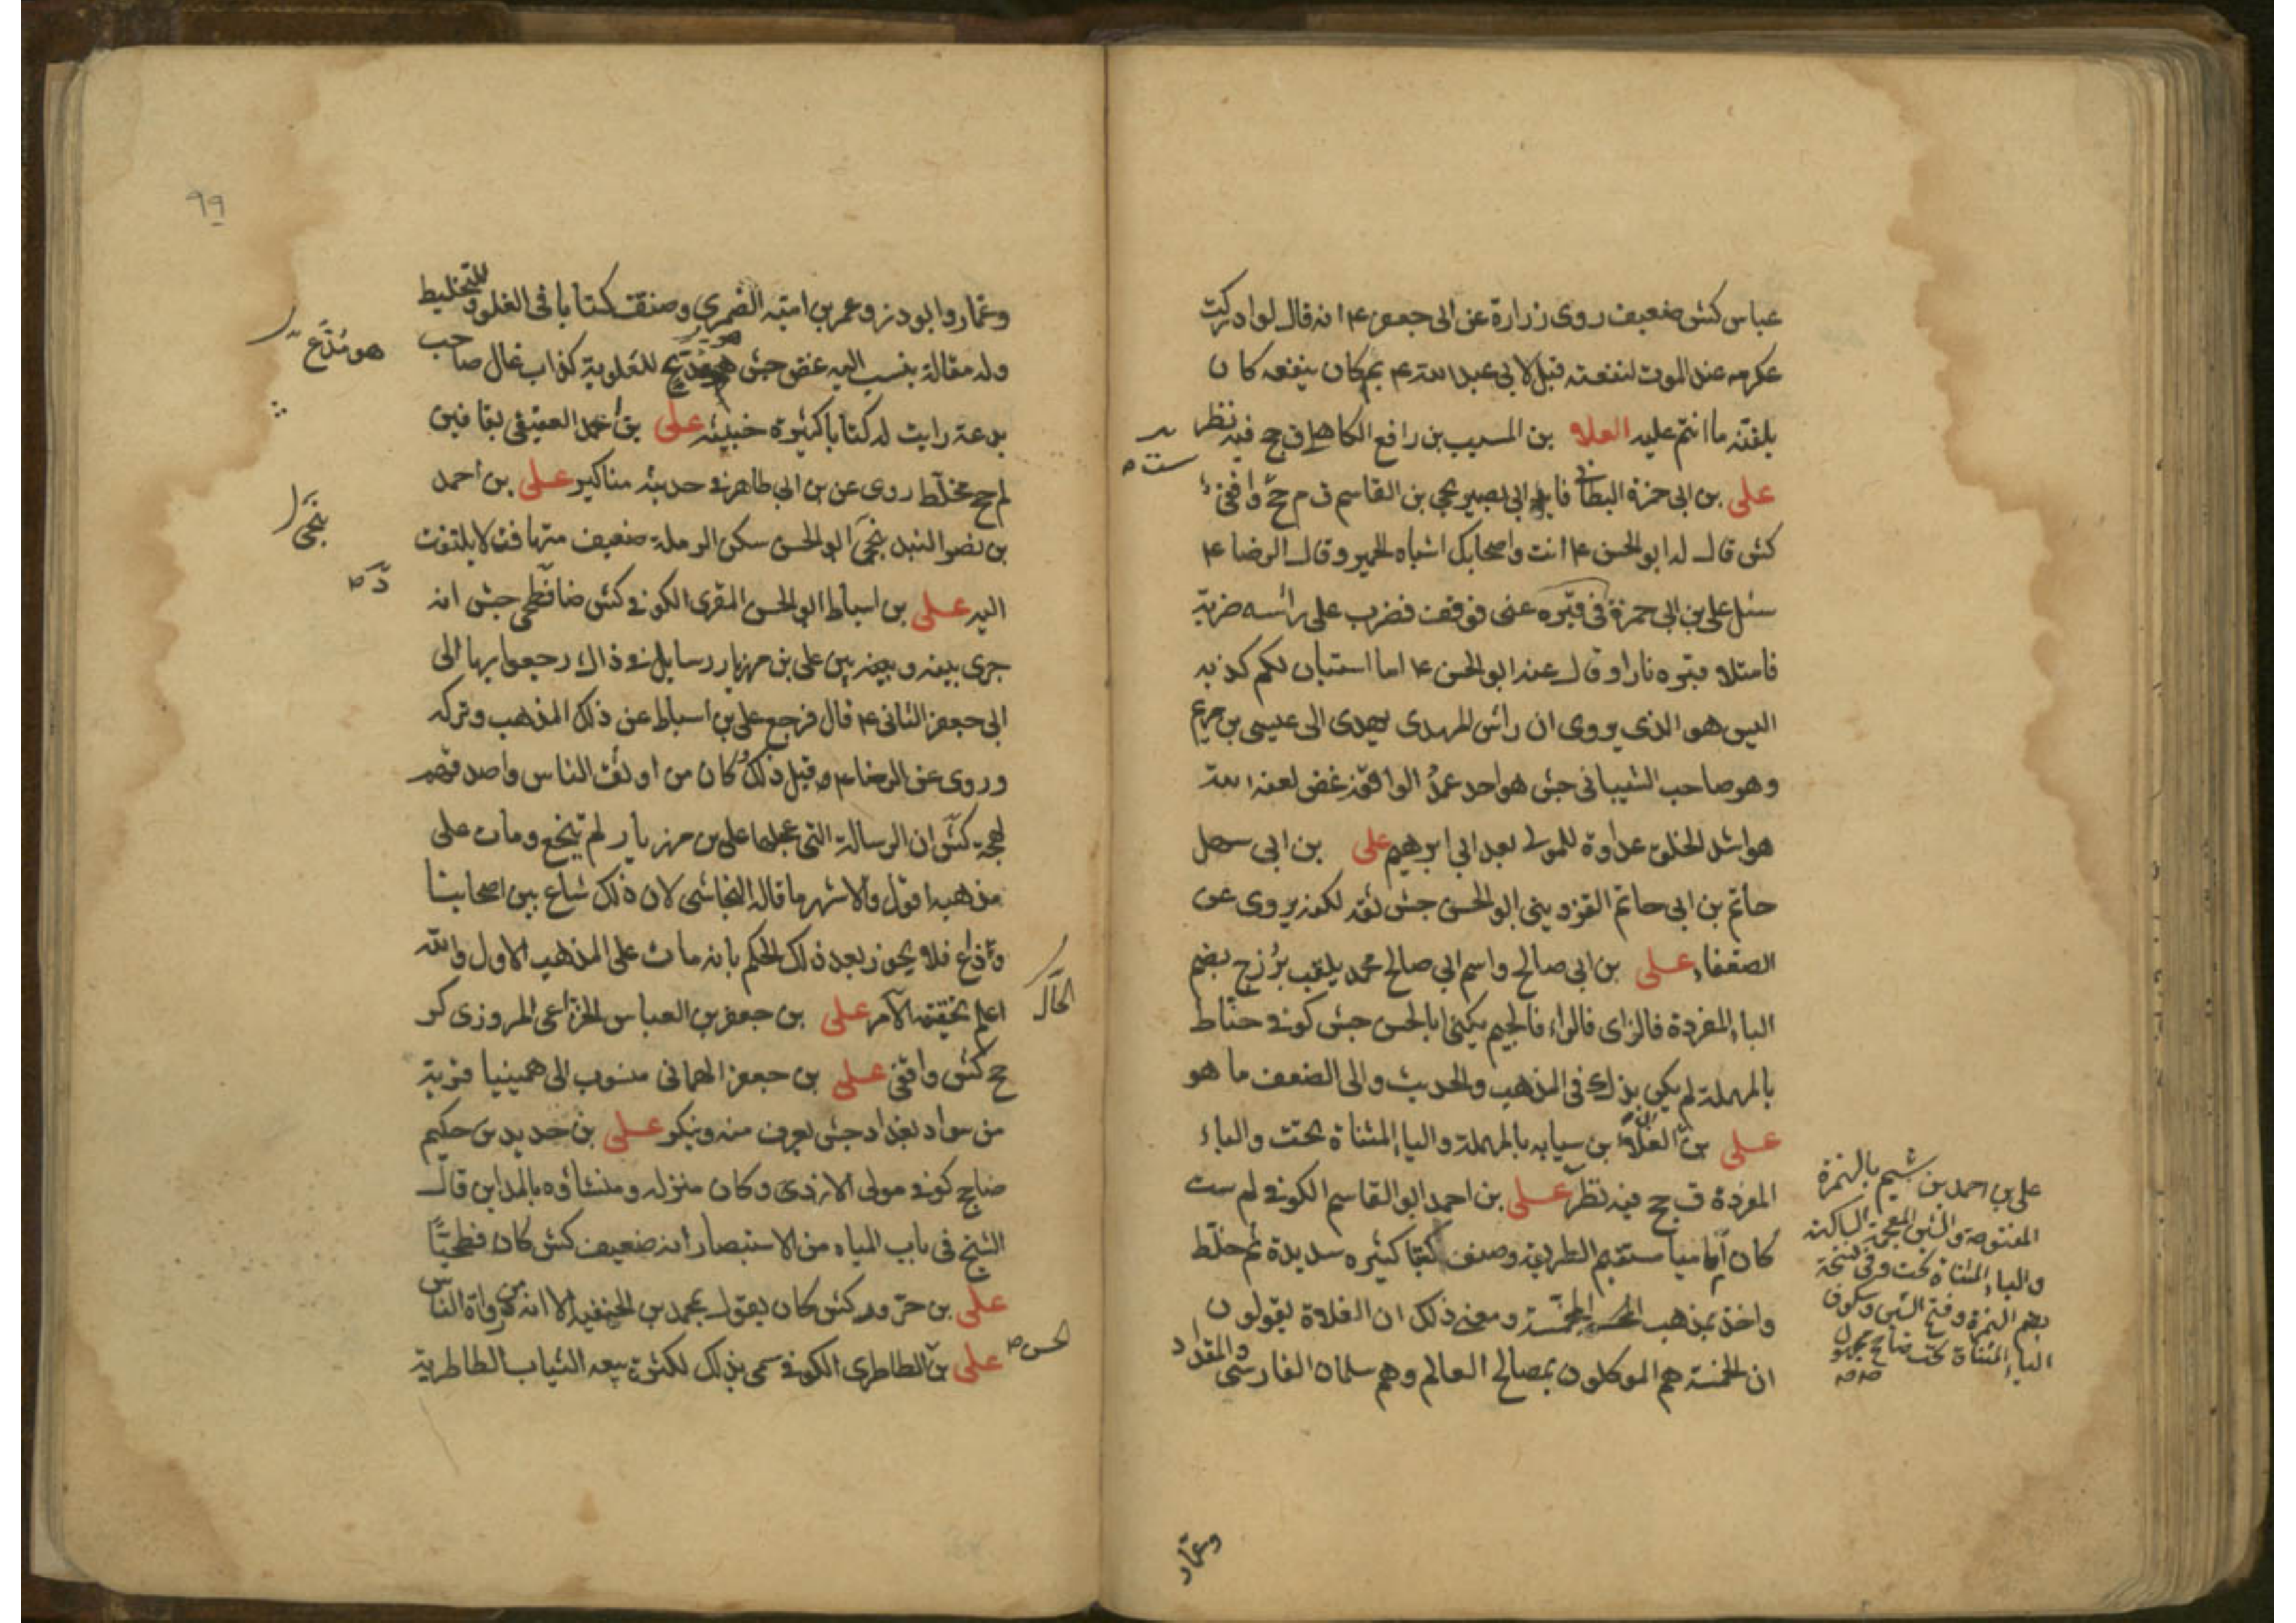 عباس كش ضعيف روى زرارة عن ابى جعفر ع انه قال لو ادركت
عكرمه عند الموت لنفعته قيل لابى عبد الله ع بم كان ينفعه كان
يلقنه ما انتم عليه العلاء بن المسيب بن رافع الكاهلى ق جخ فيه نظر
على بن ابى حمزة البطائنى قايد ابى بصير يحيى بن القاسم ق م جخ واقفى
كش قال له ابو الحسن ع انت واصحابك اشباه الحمير وقال الرضا ع
سئل على بن ابى حمزة فى قبره عنى فوقف فضرب على رأسه ضربة
فامتلاء قبره نارا وقال عنه ابو الحسن ع اما استبان لكم كذبه
اليس هو الذى يروى ان رأس المهدى يهدى الى عيسى بن مريم
وهو صاحب الشيبانى جش هو احد عمد الواقفة غض لعنه الله
هو اشد الخلق عداوة للمولى بعد ابى ابرهيم على بن ابى سهل
حاتم بن ابى حاتم القزوينى ابو الحسن جش ثقه لكنه يروى عن
الضعفاء على بن ابى صالح واسم ابى صالح محمد يلقب بزرج بضم
الباء المفردة فالزاى فالراء فالجيم يكنى ابا الحسن جش كوفى حناط
بالمهملة لم يكن بذلك فى المذهب والحديث والى الضعف ما هو
على بن ابى العلاء بن سيابه بالمهملة والياء المثناة تحت والباء
المفردة ق جخ فيه نظر على بن احمد ابو القاسم الكوفى لم ست
كان اماميا مستقيم الطريقة وصنف كتبا كثيره سديدة ثم خلط
واخذ بمذهب المخمسة ومعنى ذلك ان الغلاة يقولون
ان الخمسة هم الموكلون بمصالح العالم وهم سلمان الفارسى والمقداد
ست ص
على بن احمد بن اشيم بالهمزة
المفتوحة والشين المعجمة الساكنة
والياء المثناة تحت وفى نسخة
بضم الهمزة وفتح الشين وسكون
الياء المثناة تحت ضا جخ مجهول
وعمار
٩٩
وعمار وابو ذر وعمر بن اميه الضمرى وصنف كتابا فى الغلو والتخليط
وله مقالة ينسب اليه غض جش للعلوية كذاب غال صاحب
بدعة رايت له كتابا كثيرة خبيثه على بن احمد العقيقى بقافين
لم جخ مخلط روى عن بن ابى طاهر فى حديثه مناكير على بن احمد
بن نصر البندنيجى ابو الحسن سكن الرملة ضعيف متهافت لا يلتفت
اليه على بن اسباط ابو الحسن المقرى الكوفى كش ضا فطحى جش انه
جرى بينه وبين على بن مهزيار رسايل فى ذلك رجعوا بها الى
ابى جعفر الثانى ع قال فرجع على بن اسباط عن ذلك المذهب وتركه
وروى عن الرضا ع قبل ذلك وكان من اوثق الناس واصدقهم
لهجة كش ان الرسالة التى عملها على بن مهزيار لم تنجع ومات على
مذهبه اقول والاشهر ما قاله النجاشى لان ذلك شاع بين اصحابنا
وذاع فلا يجوز بعد ذلك الحكم بانه مات على المذهب الاول والله
اعلم بحقيقة الامر على بن جعفر بن العباس الخزاعى المروزى كر
جخ كش واقفى على بن جعفر الهمانى منسوب الى همينيا قرية
من سواد بغداد جش يعرف منه وينكر على بن حديد بن حكيم
ضا جخ كوفى مولى الازدى وكان منزله ومنشاؤه بالمداين قال
الشيخ فى باب المياه من الاستبصار انه ضعيف كش كان فطحيا
على بن حزور كش كان يقول بمحمد بن الحنفية الا انه من رواة الناس
على بن الطاطرى الكوفى سمى بذلك لكثرة بيعه الثياب الطاطرية
هو مدع
نيجى
الحال
الحسن ص